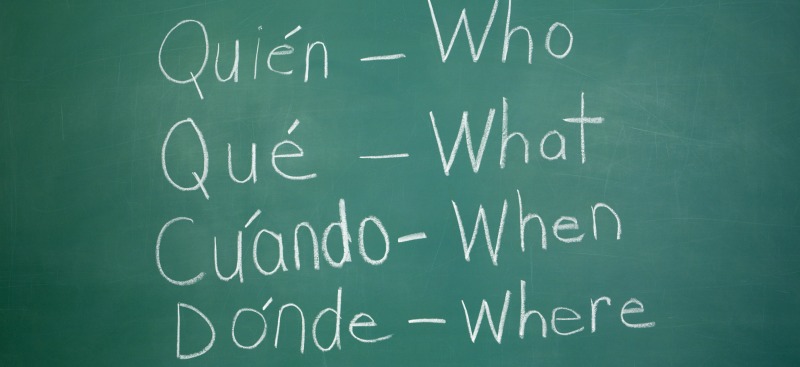 Quién – Who
Qué – What
Cuándo – When
Dónde – Where